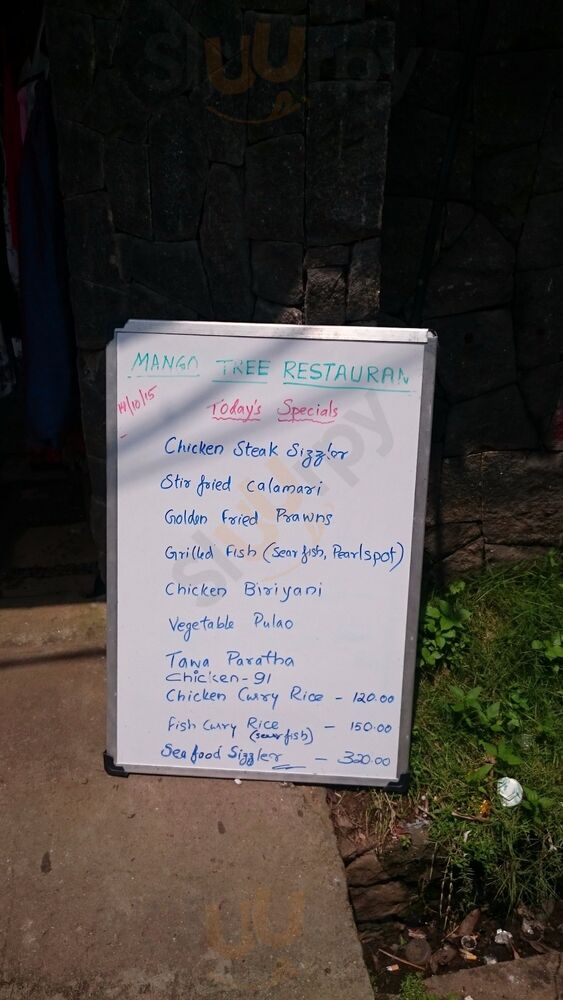 MANGO TREE RESTAURAN
14/10/15
Today's Specials
Chicken Steak Sizzlor
Stir fried Calamari
Golden Fried Prawns
Grilled Fish (Sear fish, Pearlspot)
Chicken Biriyani
Vegetable Pulao
Tawa Paratha
Chicken-91
Chicken Curry Rice - 120.00
Fish Curry Rice - 150.00
(sear fish)
Sea food Sizzler - 320.00
sluurpy
sluurpy